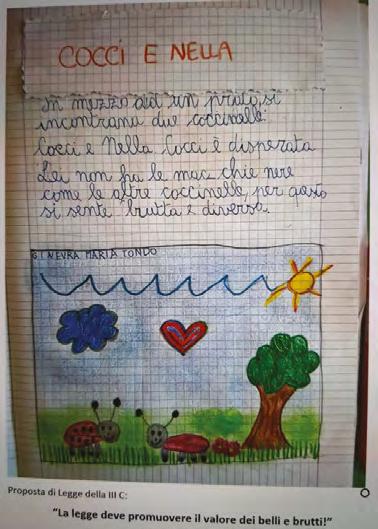 COCCI E NELLA
In mezzo ad un prato, si
incontrano due coccinelle:
Cocci e Nella Cocci è disperata
Lei non ha le mac chie nere
come le altre coccinelle, per questo
si sente brutta e diversa.
GINEVRA MARIA TONDO
Proposta di Legge della III C:
"La legge deve promuovere il valore dei belli e brutti!"